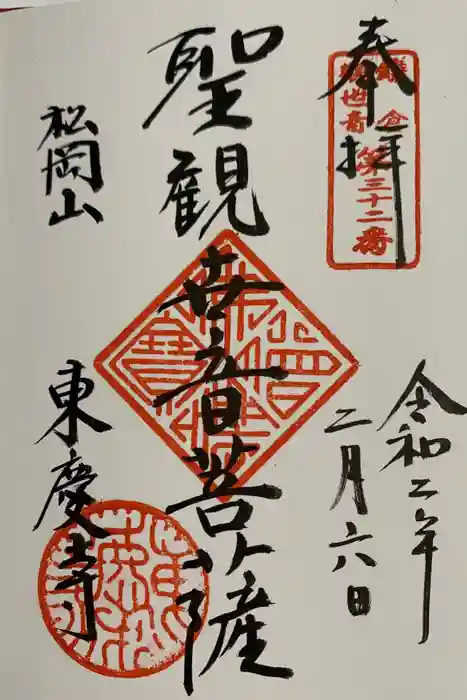 奉拝
鎌倉
観世音
第三十二番
令和二年
二月六日
聖観世音菩薩
松岡山
東慶寺